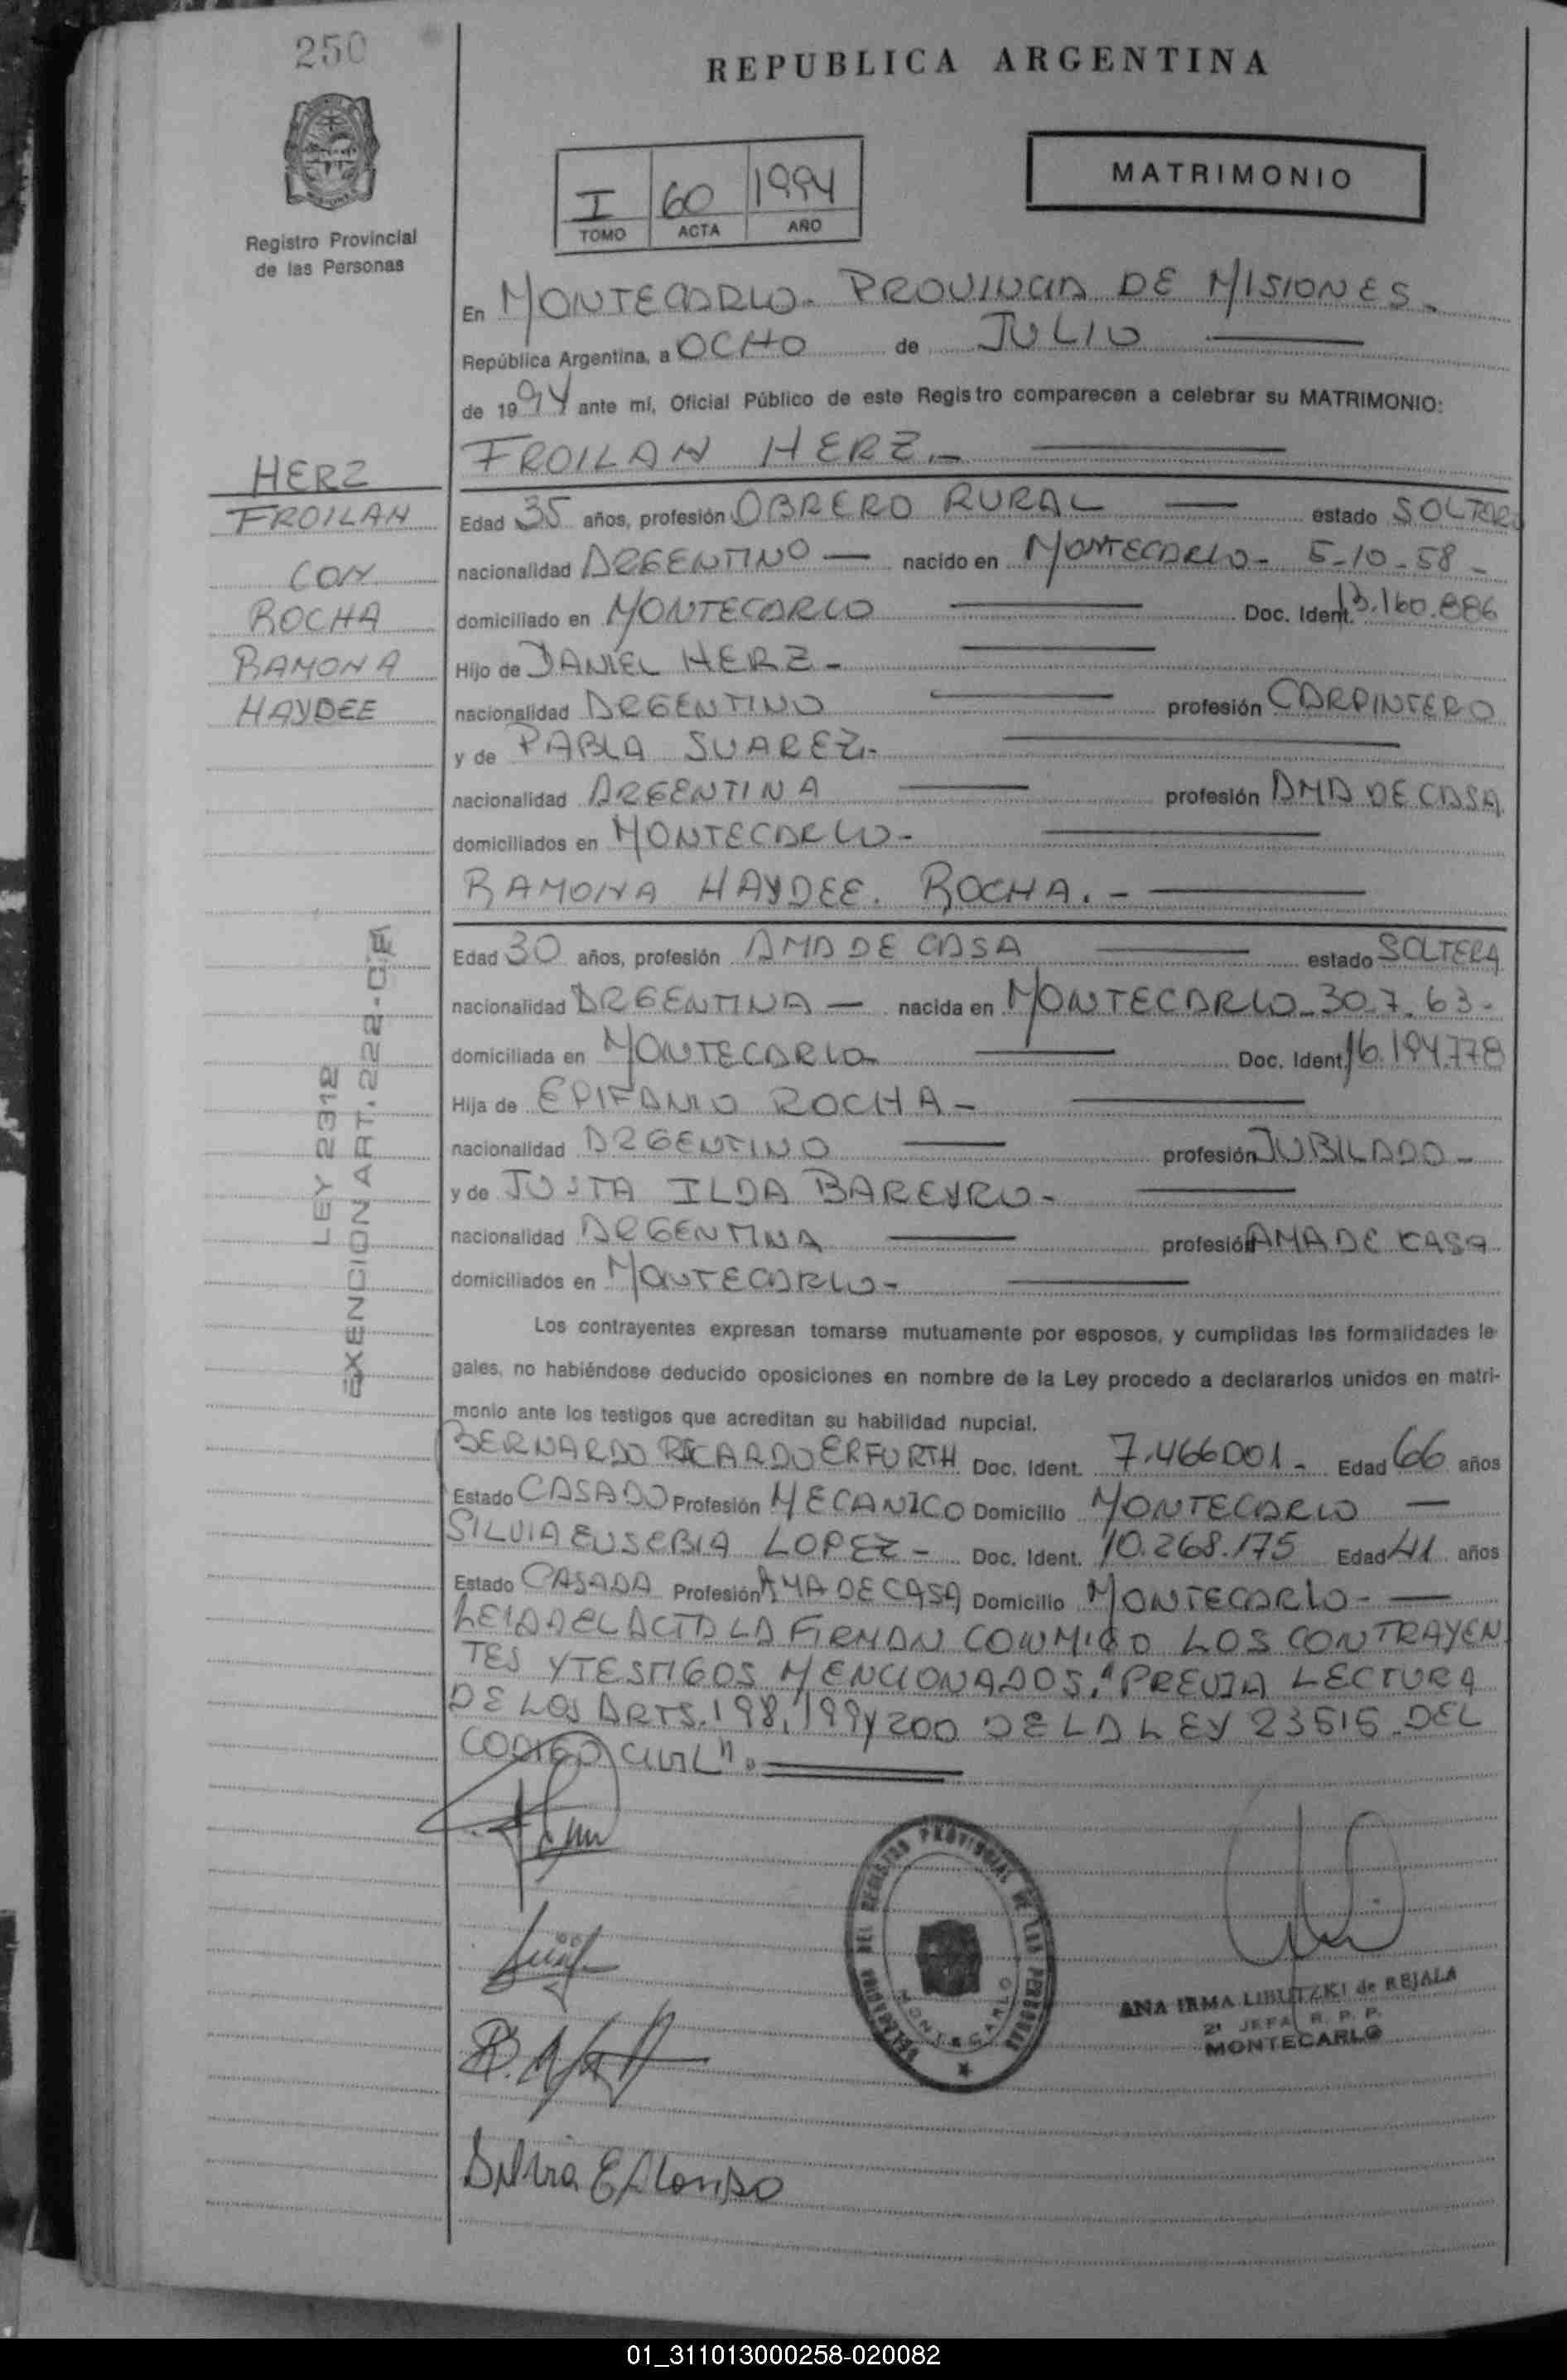 250
REPUBLICA ARGENTINA
Registro Provincial
de las Personas
I 60 1994
TOMO ACTA AÑO
MATRIMONIO
En MONTECARLO. PROVINCIA DE MISIONES.
República Argentina, a OCHO de JULIO
de 1994 ante mí, Oficial Público de este Registro comparecen a celebrar su MATRIMONIO:
FROILAN HERZ.-
HERZ
FROILAN
CON
ROCHA
RAMONA
HAYDEE
Edad 35 años, profesión OBRERO RURAL estado SOLTERO
nacionalidad ARGENTINO - nacido en MONTECARLO - 5-10-58 -
domiciliado en MONTECARLO Doc. Ident. 13.160.886
Hijo de DANIEL HERZ -
nacionalidad ARGENTINO profesión CARPINTERO
y de PABLA SUAREZ.-
nacionalidad ARGENTINA profesión AMA DE CASA
domiciliados en MONTECARLO -
RAMONA HAYDEE. ROCHA. -
Edad 30 años, profesión AMA DE CASA estado SOLTERA
nacionalidad ARGENTINA - nacida en MONTECARLO - 30.7.63 -
domiciliada en MONTECARLO Doc. Ident. 16.194.778
Hija de EPIFANIO ROCHA -
nacionalidad ARGENTINO profesión JUBILADO -
y de JUSTA ILDA BAREYRO -
nacionalidad ARGENTINA profesión AMA DE CASA
domiciliados en MONTECARLO -
LEY 2312
EXENCION ART. 222-CF
Los contrayentes expresan tomarse mutuamente por esposos, y cumplidas las formalidades le-
gales, no habiéndose deducido oposiciones en nombre de la Ley procedo a declararlos unidos en matri-
monio ante los testigos que acreditan su habilidad nupcial.
BERNARDO RICARDO ERFURTH Doc. Ident. 7.466001 - Edad 66 años
Estado CASADO Profesión MECANICO Domicilio MONTECARLO -
SILVIA EUSEBIA LOPEZ - Doc. Ident. 10.268.175 Edad 41 años
Estado CASADA Profesión AMA DE CASA Domicilio MONTECARLO - -
LEIDA EL ACTA LA FIRMAN CONMIGO LOS CONTRAYEN
TES Y TESTIGOS MENCIONADOS. "PREVIA LECTURA
DE LOS ARTS. 198, 199 Y 200 DE LA LEY 23515 DEL
CODIGO CIVIL".
DELEGACION DEL REGISTRO PROVINCIAL DE LAS PERSONAS
MONTECARLO
ANA IRMA LIBUTZKI de REJALA
2ª JEFA R. P. P.
MONTECARLO
Silvia E Alonso
01_311013000258-020082